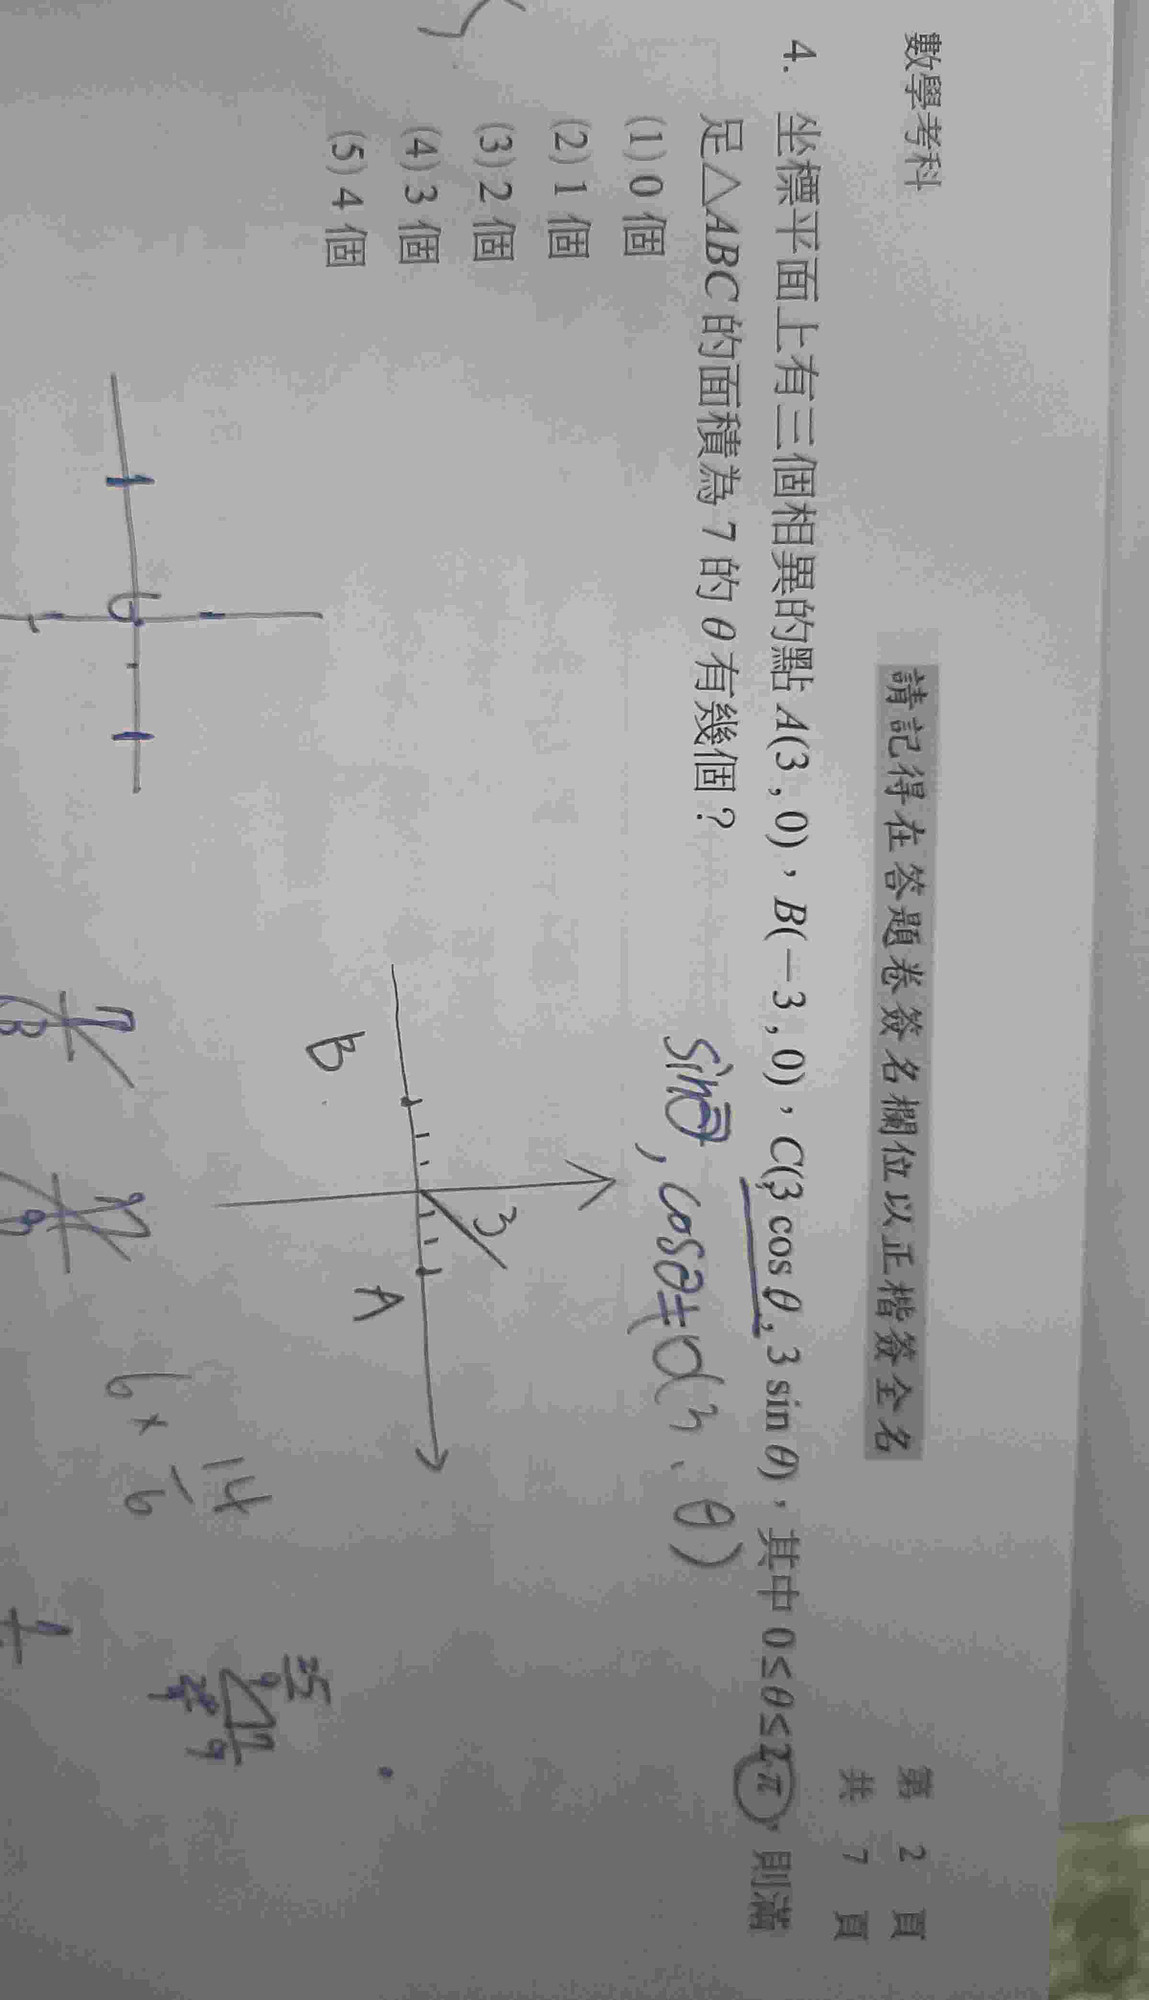 數學考科
請記得在答題卷簽名欄位以正楷簽全名
第 2 頁
共 7 頁
4. 坐標平面上有三個相異的點 A(3, 0),B(-3, 0),C(3 cos θ, 3 sin θ),其中 0≤θ≤2π,則滿
足△ABC 的面積為 7 的 θ 有幾個?
(1) 0 個
(2) 1 個
(3) 2 個
(4) 3 個
(5) 4 個
3
B
A
14
6×
6
35
9